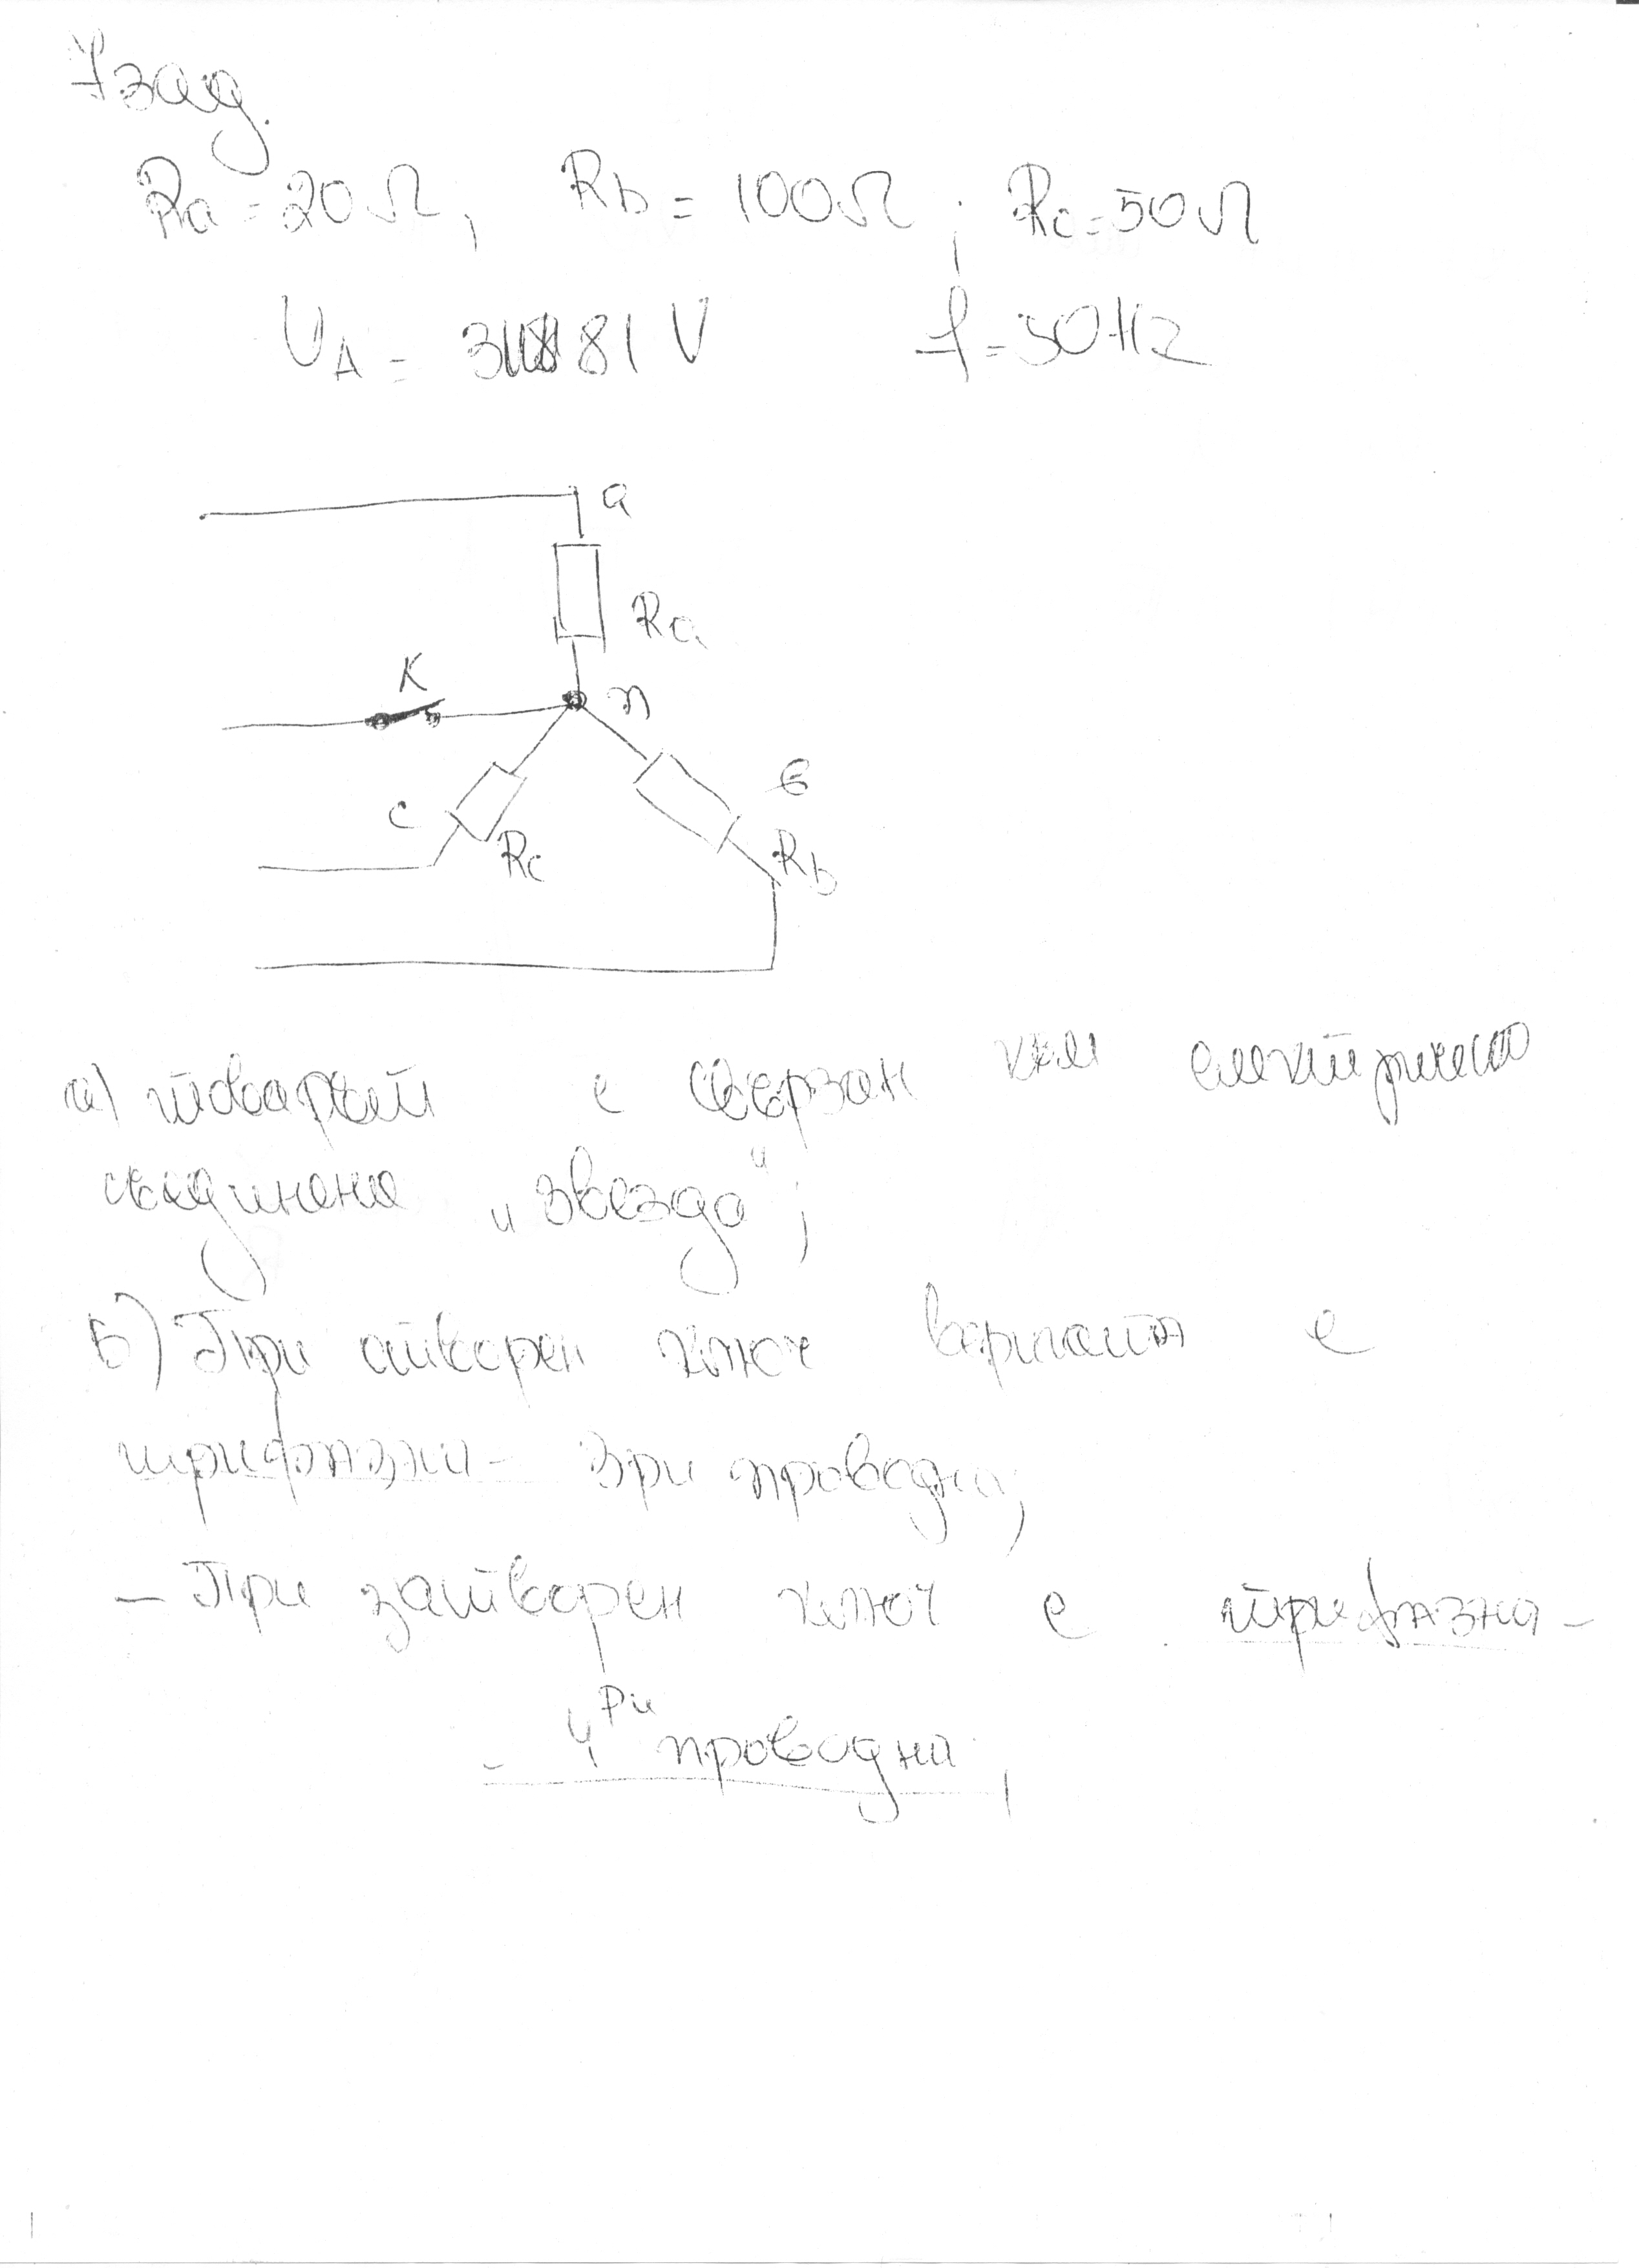 7 зад.
Ra = 20 Ω, Rb = 100 Ω; Rc = 50 Ω
UA = 381 V f = 50 Hz
a
Ra
K
n
в
c
Rc
Rb
а) товарът е свързан към
съединена „звезда“;
Б) При отворен ключ веригата е
трифазна - три проводна;
– При затворен ключ е трифазна –
- 4ри проводна,